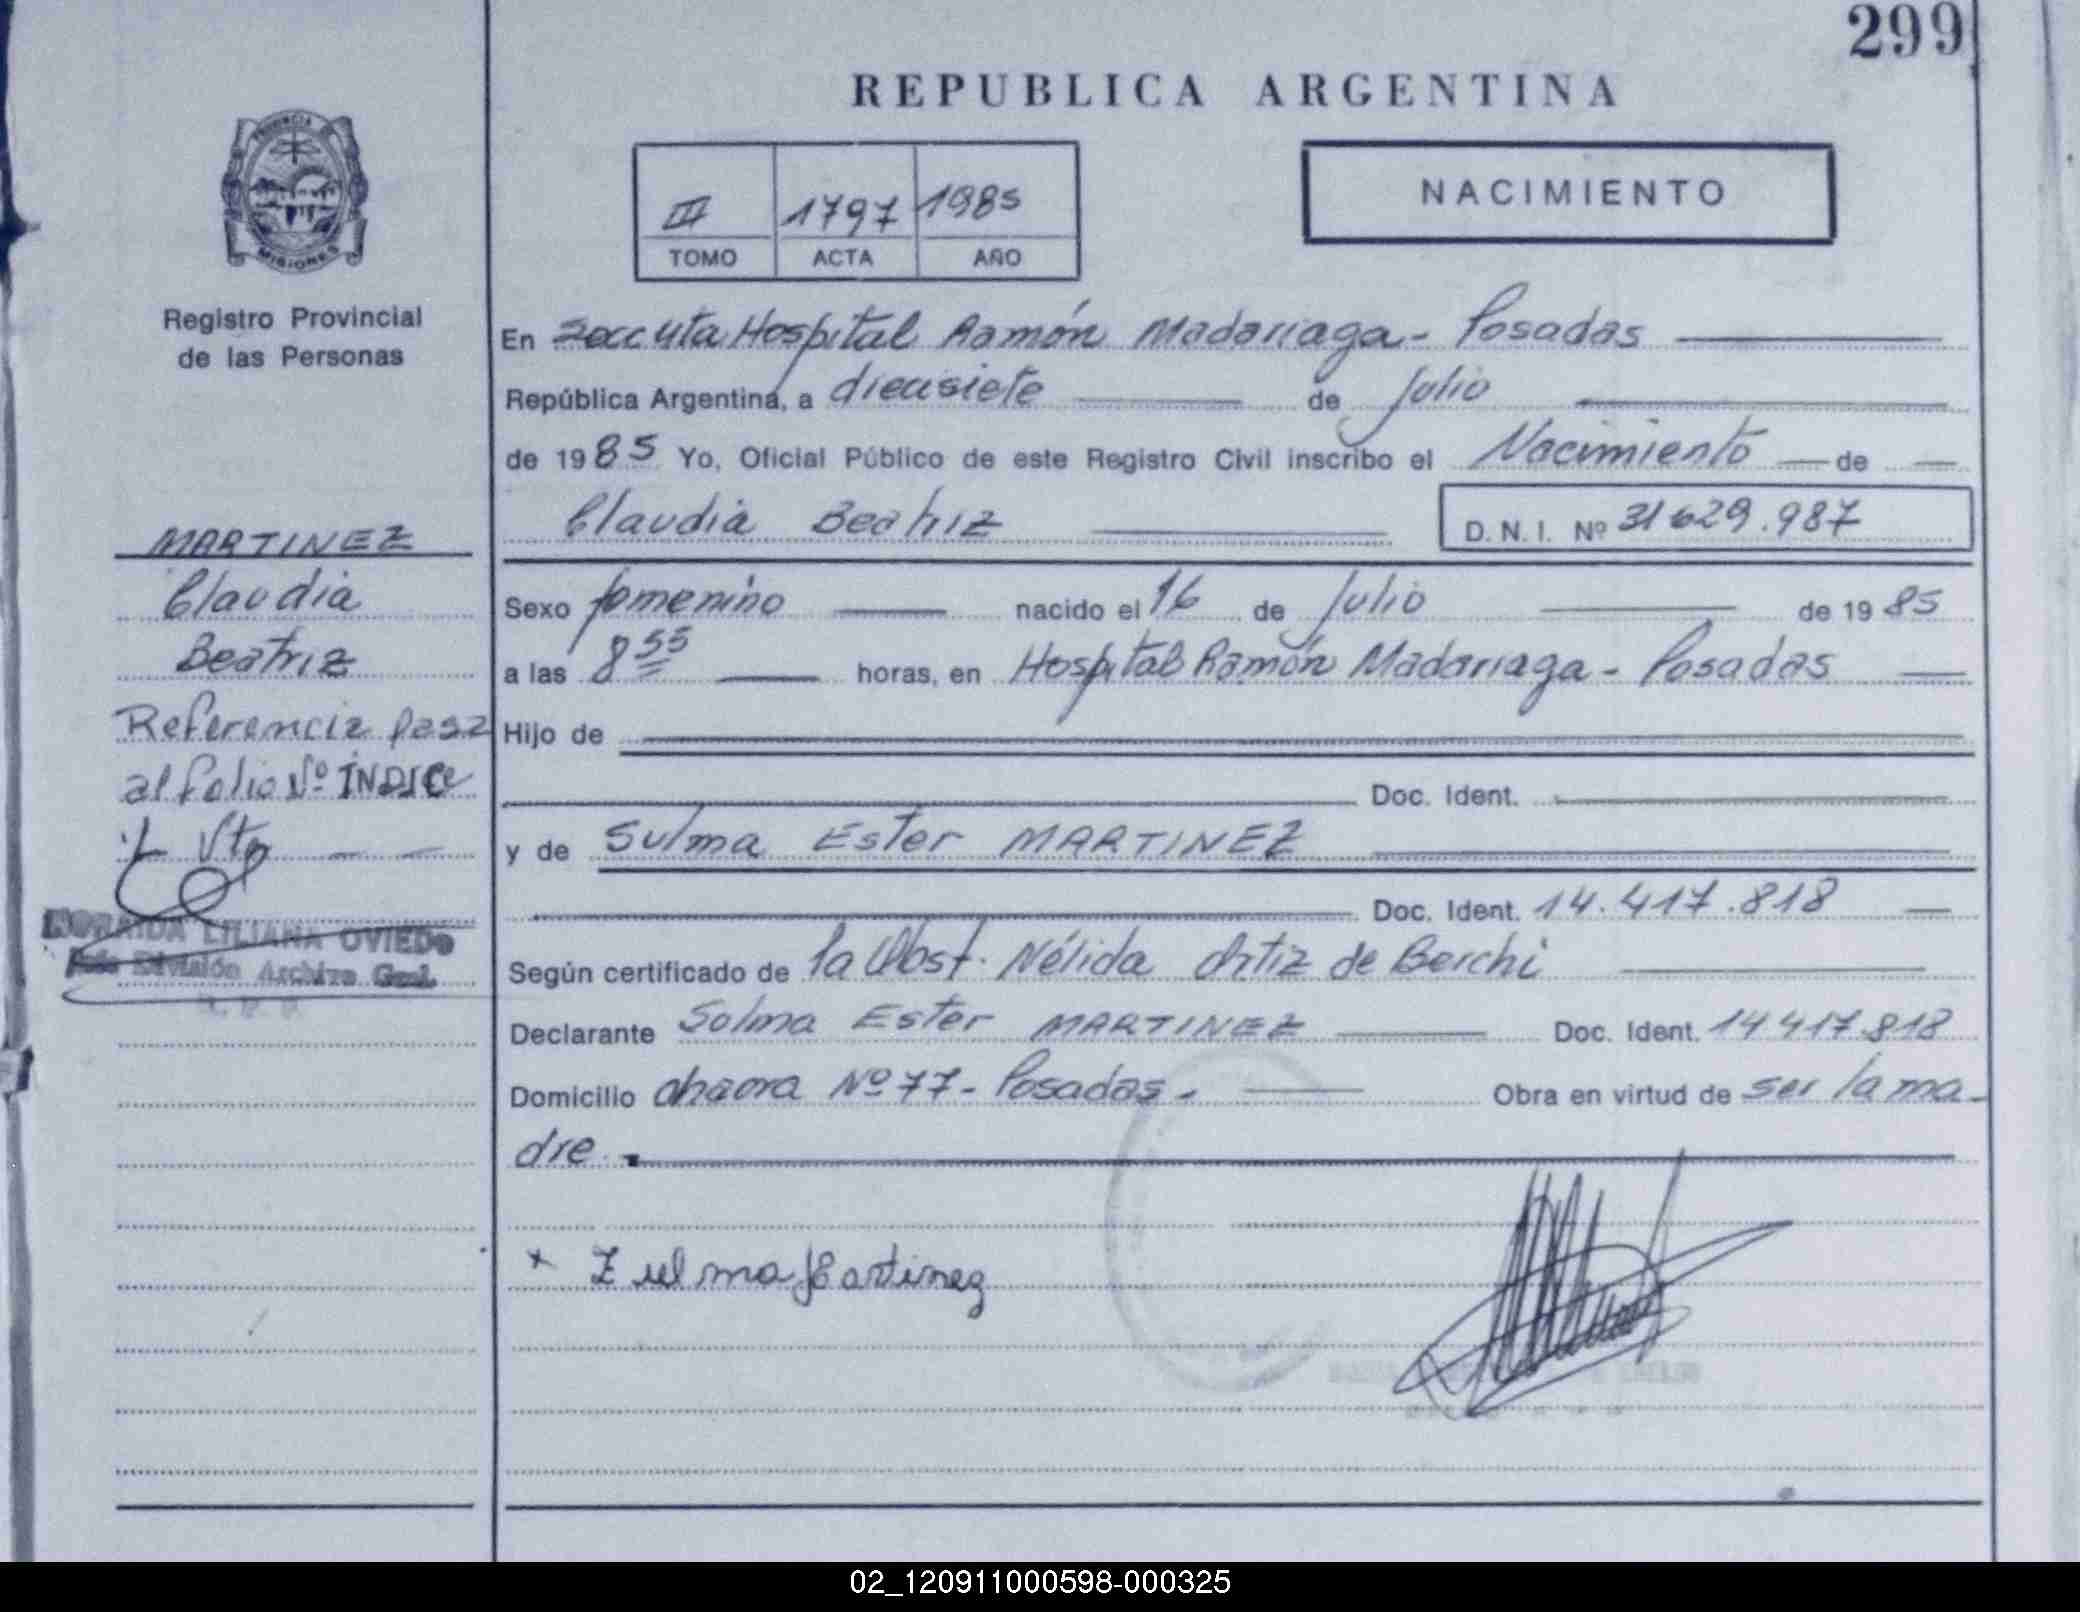 299
REPUBLICA ARGENTINA
PROVINCIA
MISIONES
Registro Provincial
de las Personas
III 1797 1985
TOMO ACTA AÑO
NACIMIENTO
En Hospital Ramón Madariaga - Posadas
República Argentina, a diecisiete de Julio
de 1985 Yo, Oficial Público de este Registro Civil inscribo el Nacimiento de
Claudia Beatriz D. N. I. Nº 31629.987
MARTINEZ
Claudia
Beatriz
Referencia pasa
al folio Nº INDICE
Vto
LILIANA OVIEDO
Jefe División Archivo Gral.
Sexo femenino nacido el 16 de Julio de 1985
a las 8 55 horas, en Hospital Ramón Madariaga - Posadas
Hijo de
Doc. Ident.
y de Sulma Ester MARTINEZ
Doc. Ident. 14.417.818
Según certificado de la Obst. Nélida Ortiz de Berchi
Declarante Sulma Ester MARTINEZ Doc. Ident. 14417.818
Domicilio chacra Nº 77 - Posadas - Obra en virtud de ser la ma-
dre
x Zulma Martinez
02_120911000598-000325